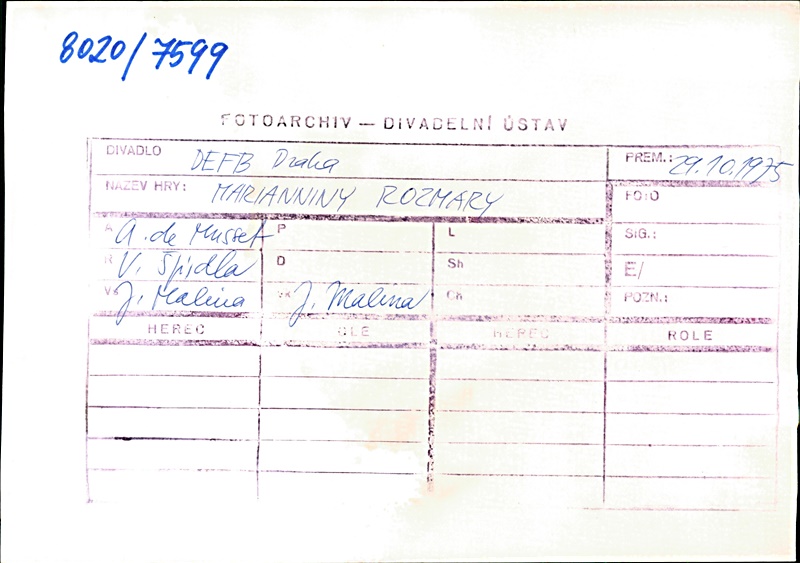 8020/7599
FOTOARCHIV — DIVADELNÍ ÚSTAV
DIVADLO DEFB Praha PREM.: 29.10.1975
NÁZEV HRY: MARIANNINY ROZMARY FOTO
A A. de Musset P L SIG.:
R V. Špidla D Sh E/
Vk J. Malina J. Malina Ch POZN.:
HEREC ROLE HEREC ROLE